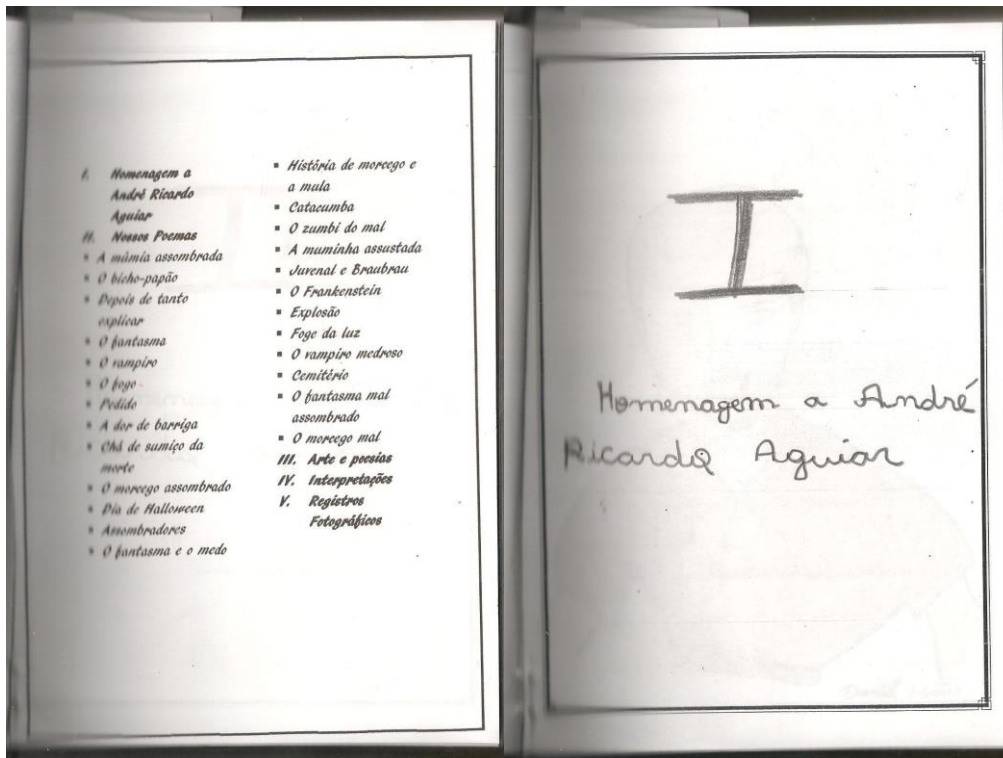 I. Homenagem a
André Ricardo
Aguiar
II. Nossos Poemas
▪ A múmia assombrada
▪ O bicho-papão
▪ Depois de tanto
explicar
▪ O fantasma
▪ O vampiro
▪ O fogo
▪ Pedido
▪ A dor de barriga
▪ Chá de sumiço da
morte
▪ O morcego assombrado
▪ Dia de Halloween
▪ Assombradores
▪ O fantasma e o medo
▪ História de morcego e
a mula
▪ Catacumba
▪ O zumbi do mal
▪ A muminha assustada
▪ Juvenal e Braubrau
▪ O Frankenstein
▪ Explosão
▪ Foge da luz
▪ O vampiro medroso
▪ Cemitério
▪ O fantasma mal
assombrado
▪ O morcego mal
III. Arte e poesias
IV. Interpretações
V. Registros
Fotográficos
I
Homenagem a André
Ricardo Aguiar